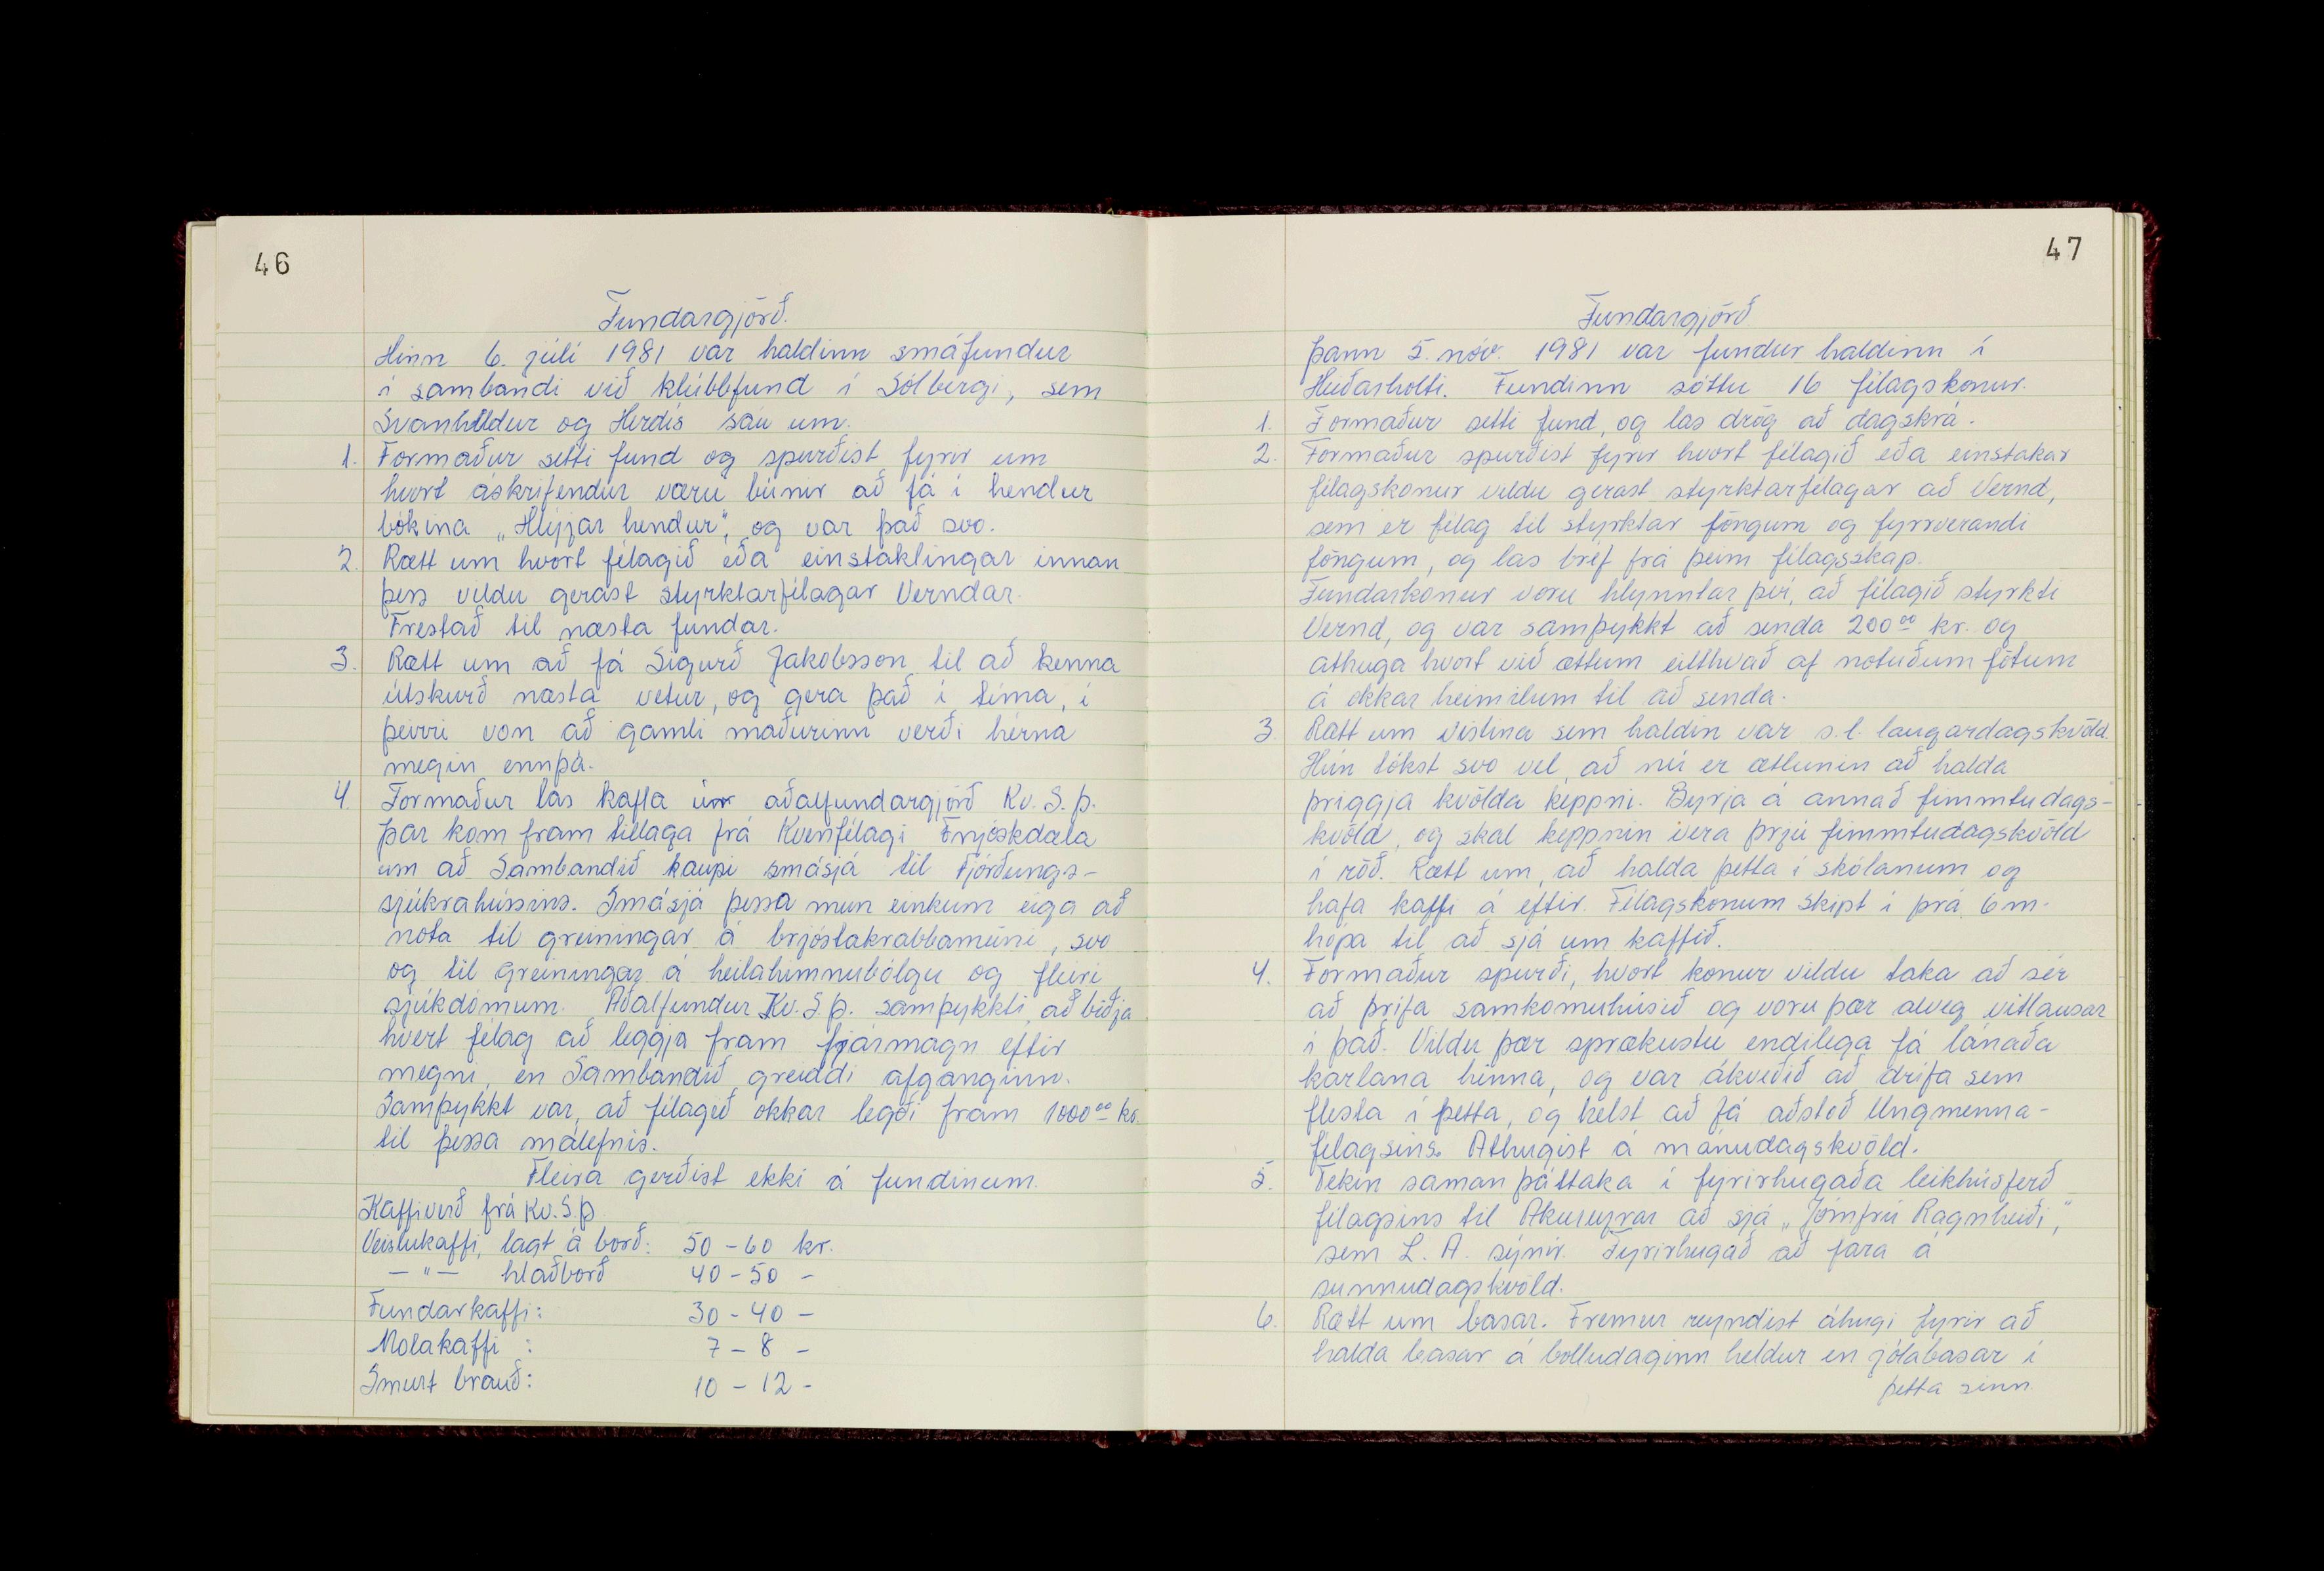 46
Fundargjörð.
Hinn 6. júlí 1981 var haldinn smáfundur
í sambandi við klúbbfund í Sólbergi, sem
Svanhildur og Herdís sáu um.
1. Formaður setti fund og spurðist fyrir um
hvort áskrifendur væru búnir að fá í hendur
bókina „Hlýjar hendur“, og var það svo.
2. Rætt um hvort félagið eða einstaklingar innan
þess vildu gerast styrktarfélagar Verndar.
Frestað til næsta fundar.
3. Rætt um að fá Sigurð Jakobsson til að kenna
útskurð næsta vetur, og gera það í tíma, í
þeirri von að gamli maðurinn verði hérna
megin ennþá.
4. Formaður las kafla úr aðalfundargjörð Kv. S. Þ.
Þar kom fram tillaga frá Kvenfélagi Fnjóskdæla
um að Sambandið kaupi smásjá til Fjórðungs-
sjúkrahússins. Smásjá þessa mun einkum eiga að
nota til greiningar á brjóstakrabbameini, svo
og til greiningar á heilahimnubólgu og fleiri
sjúkdómum. Aðalfundur Kv. S. Þ. samþykkti, að biðja
hvert félag að leggja fram fjármagn eftir
megni, en Sambandið greiddi afganginn.
Samþykkt var, að félagið okkar legði fram 1000⁰⁰ kr.
til þessa málefnis.
Fleira gerðist ekki á fundinum.
Kaffiverð frá Kv. S. Þ
Veislukaffi, lagt á borð: 50 - 60 kr.
— " — hlaðborð 40 - 50 -
Fundarkaffi: 30 - 40 -
Molakaffi : 7 - 8 -
Smurt brauð: 10 - 12 -
47
Fundargjörð
Þann 5. nóv. 1981 var fundur haldinn í
Heiðarholti. Fundinn sóttu 16 félagskonur.
1. Formaður setti fund, og las drög að dagskrá.
2. Formaður spurðist fyrir hvort félagið eða einstakar
félagskonur vildu gerast styrktarfélagar að Vernd,
sem er félag til styrktar föngum og fyrrverandi
föngum, og las bréf frá þeim félagsskap.
Fundarkonur voru hlynntar því, að félagið styrkti
Vernd, og var samþykkt að senda 200⁰⁰ kr. og
athuga hvort við ættum eitthvað af notuðum fötum
á okkar heimilum til að senda.
3. Rætt um vistina sem haldin var s.l. laugardagskvöld.
Hún tókst svo vel, að nú er ætlunin að halda
þriggja kvölda keppni. Byrja á annað fimmtudags-
kvöld, og skal keppnin vera þrjú fimmtudagskvöld
í röð. Rætt um, að halda þetta í skólanum og
hafa kaffi á eftir. Félagskonum skipt í þrá 6 m.
hópa til að sjá um kaffið.
4. Formaður spurði, hvort konur vildu taka að sér
að þrífa samkomuhúsið og voru þær alveg vitlausar
í það. Vildu þær sprækustu endilega fá lánaða
karlana hinna, og var ákveðið að drífa sem
flesta í þetta, og helst að fá aðstoð Ungmenna-
félagsins. Athugist á mánudagskvöld.
5. Tekin saman þáttaka í fyrirhugaða leikhúsferð
félagsins til Akureyrar að sjá „Jómfrú Ragnheiði,“
sem L. A. sýnir. Fyrirhugað að fara á
sunnudagskvöld.
6. Rætt um basar. Fremur reyndist áhugi fyrir að
halda basar á bolludaginn heldur en jólabasar í
þetta sinn.